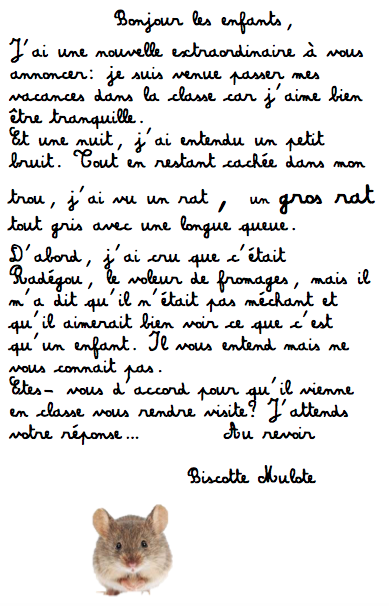 Bonjour les enfants,
J'ai une nouvelle extraordinaire à vous
annoncer: je suis venue passer mes
vacances dans la classe car j'aime bien
être tranquille.
Et une nuit, j'ai entendu un petit
bruit. Tout en restant cachée dans mon
trou, j'ai vu un rat, un gros rat
tout gris avec une longue queue.
D'abord, j'ai cru que c'était
Radégou, le voleur de fromages, mais il
m'a dit qu'il n'était pas méchant et
qu'il aimerait bien voir ce que c'est
qu'un enfant. Il vous entend mais ne
vous connait pas.
Etes- vous d'accord pour qu'il vienne
en classe vous rendre visite? J'attends
votre réponse... Au revoir
Biscotte Mulote